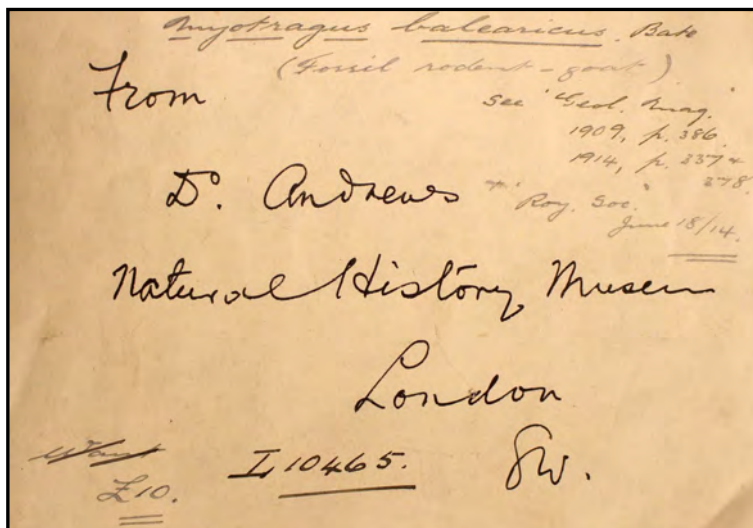 Myotragus balearicus. Bate
(Fossil rodent-goat)
From
see "Geol. Mag."
1909, p. 386.
1914, p. 337 &
378.
Dr. Andrews
"Roy. Soc."
June 18/14.
Natural History Museum
London
SW.
I, 10465.
£10.